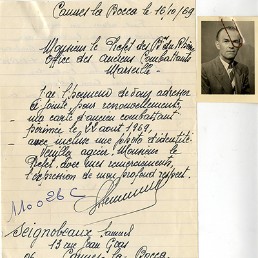 Cannes la Bocca le 16/10/69
Monsieur le Préfet des B. du Rhône
Office des Anciens Combattants
Marseille
J'ai l'honneur de vous adresser
ci joint, pour renouvellement,
ma carte d'ancien combattant
périmée le 22 août 1969,
avec incluse une photo d'identité
Veuillez agréer Monsieur le
Préfet, avec mes remerciements,
l'expression de mon profond respect.
110026 C
Seignobeaux Samuel
13 rue
06 Cannes-La Bocca